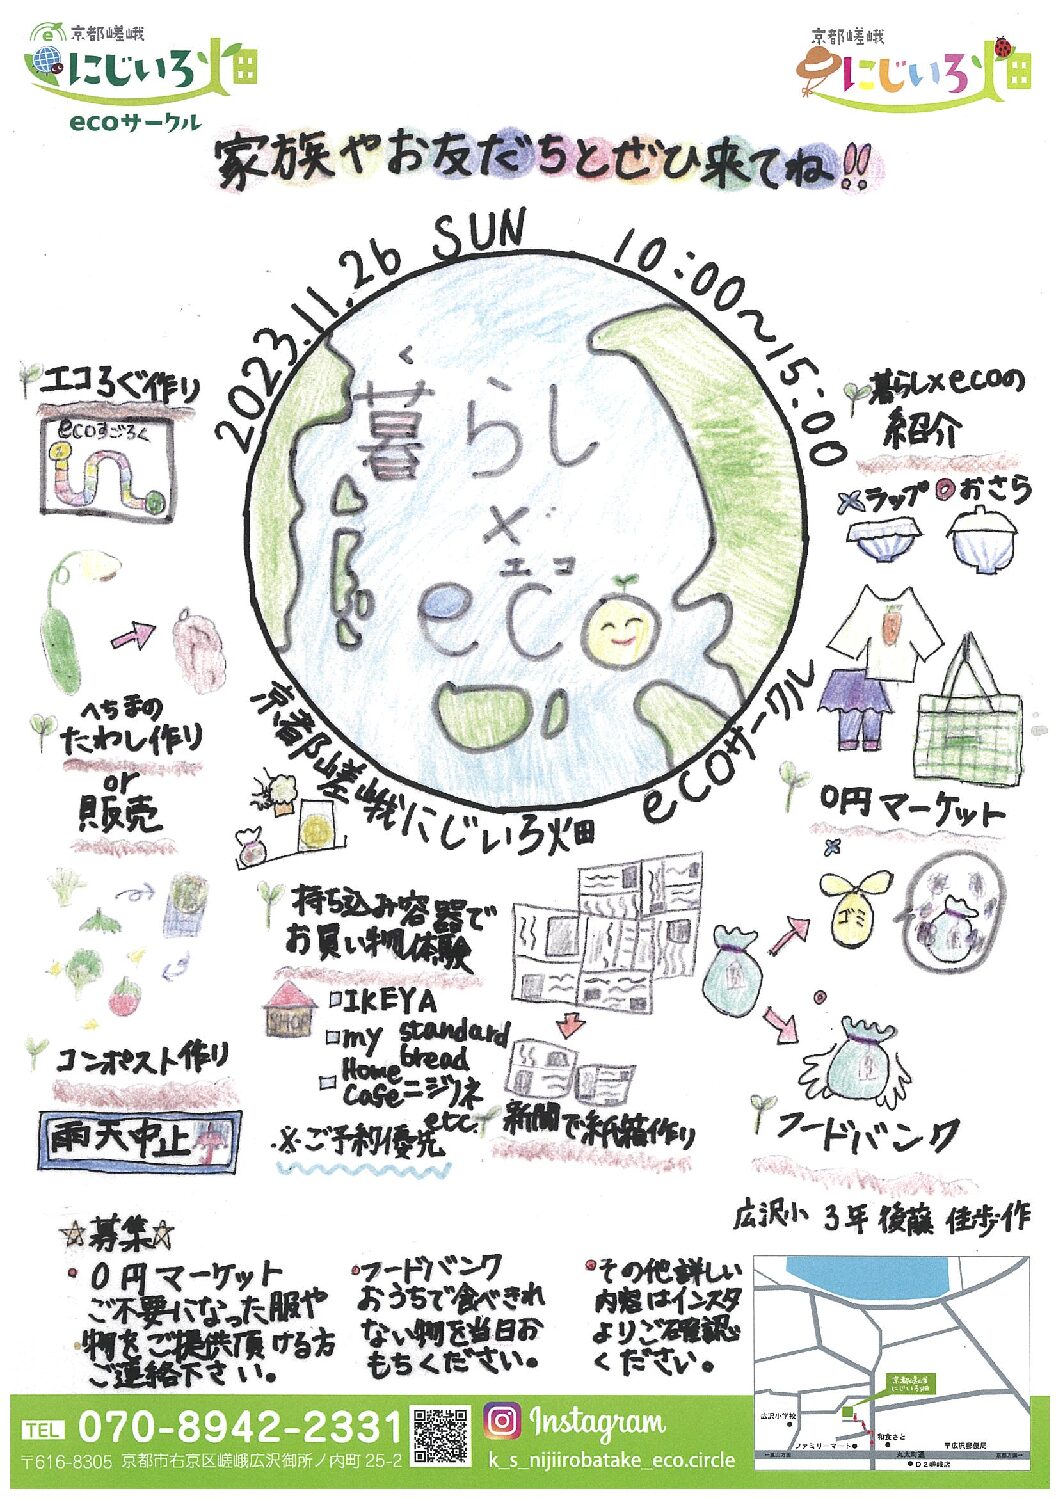 京都嵯峨
にじいろ畑
ecoサークル
京都嵯峨
にじいろ畑
家族やお友だちとぜひ来てね!!
2023.11.26 SUN 10:00〜15:00
く
暮らし
×
エコ
eco
京都嵯峨にじいろ畑 ecoサークル
エコろぐ作り
ecoすごろく
へちまの
たわし作り
or
販売
コンポスト作り
雨天中止
持ち込み容器で
お買い物体験
SHOP
IKEYA
my standard
bread
Home
cafeニジノネ
etc.
※ご予約優先
新聞で紙箱作り
暮らし×ecoの
紹介
ラップ おさら
0円マーケット
ゴミ
フードバンク
広沢小 3年 後藤 佳歩作
☆募集☆
0円マーケット
ご不要になった服や
物をご提供頂ける方
ご連絡下さい。
フードバンク
おうちで食べきれ
ない物を当日お
もちください。
その他詳しい
内容はインスタ
よりご確認
ください。
京都嵯峨
にじいろ畑
広沢小学校
ファミリーマート
和食さと
丸太町通
D2嵯峨店
TEL 070-8942-2331
〒616-8305 京都市右京区嵯峨広沢御所ノ内町25-2
Instagram
k_s_nijiirobatake_eco.circle